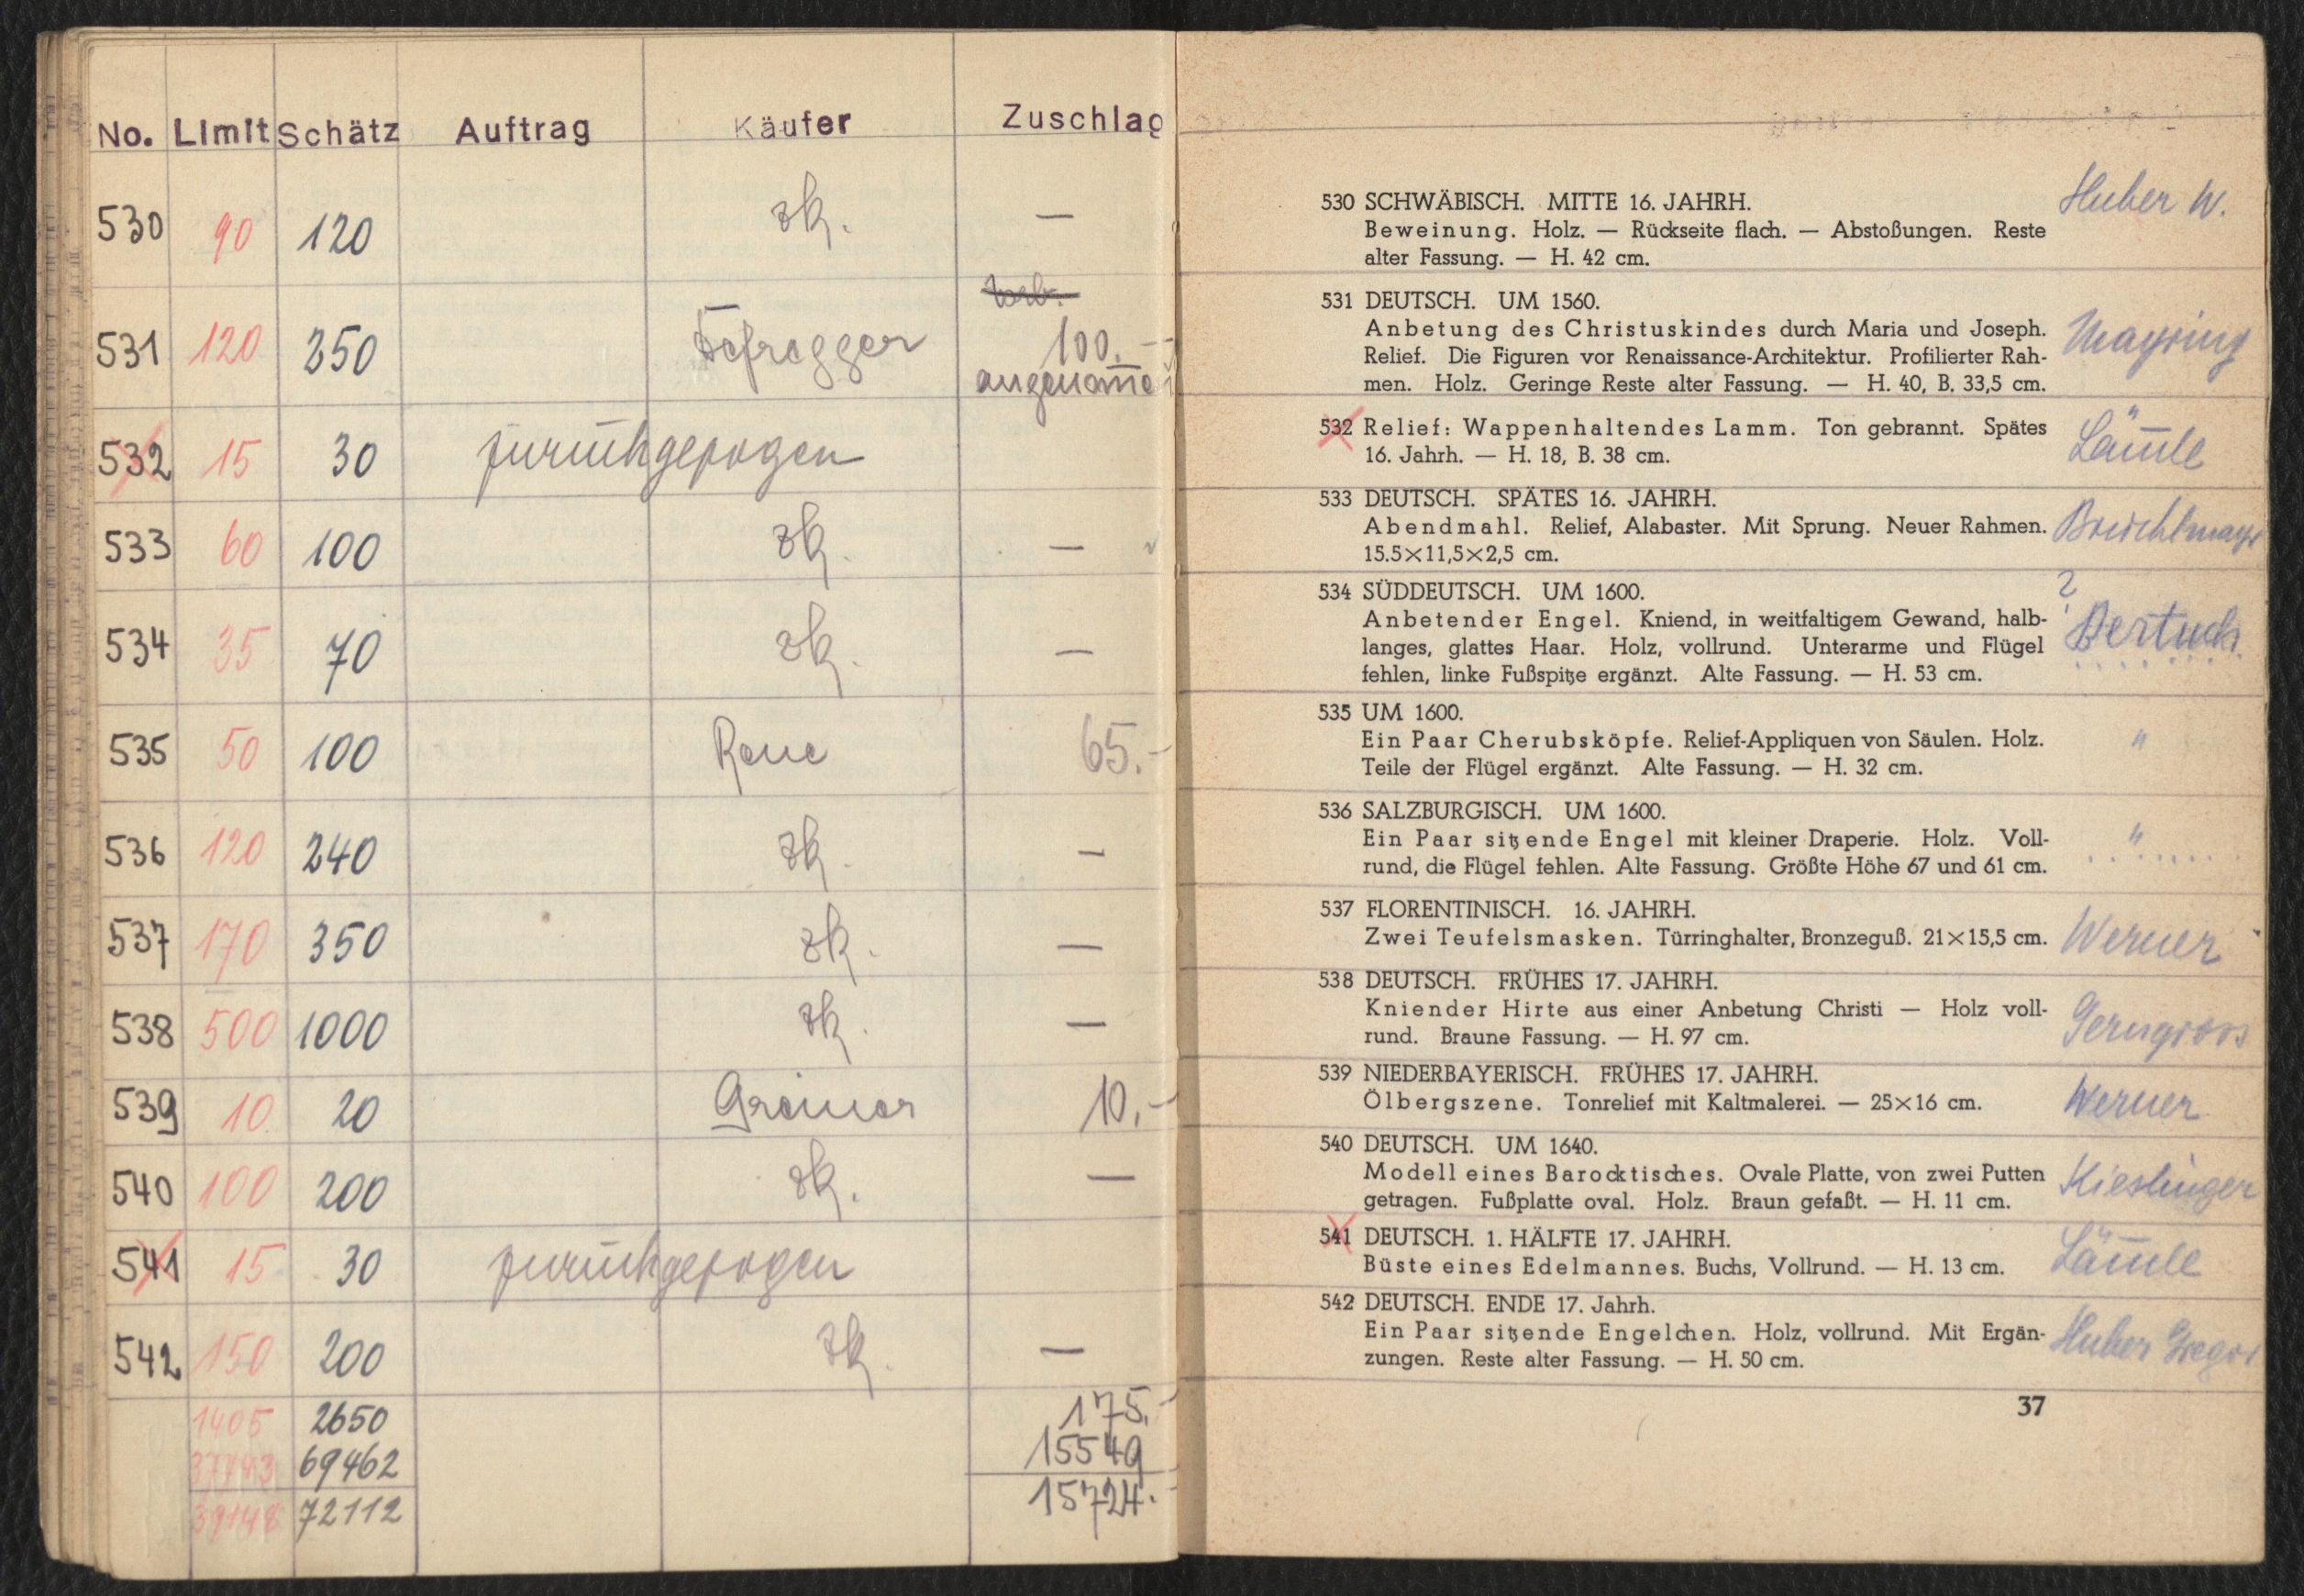 No. Limit Schätz Auftrag Käufer Zuschlag
530 90 120 zk. —
531 120 250 Defregger 100.—
angenom̅en
532 15 30 zurückgezogen
533 60 100 zk. —
534 35 70 zk. —
535 50 100 Rene 65.-
536 120 240 zk. —
537 170 350 zk. —
538 500 1000 zk. —
539 10 20 Greiner 10.-
540 100 200 zk. —
541 15 30 zurückgezogen
542 150 200 zk. —
1405 2650 175.-
37743 69462 15549
39148 72112 15724.-
530 SCHWÄBISCH. MITTE 16. JAHRH. Huber W.
Beweinung. Holz. — Rückseite flach. — Abstoßungen. Reste
alter Fassung. — H. 42 cm.
531 DEUTSCH. UM 1560.
Anbetung des Christuskindes durch Maria und Joseph. Mayring
Relief. Die Figuren vor Renaissance-Architektur. Profilierter Rah-
men. Holz. Geringe Reste alter Fassung. — H. 40, B. 33,5 cm.
532 Relief: Wappenhaltendes Lamm. Ton gebrannt. Spätes Läm̅le
16. Jahrh. — H. 18, B. 38 cm.
533 DEUTSCH. SPÄTES 16. JAHRH.
Abendmahl. Relief, Alabaster. Mit Sprung. Neuer Rahmen.
15.5×11,5×2,5 cm.
534 SÜDDEUTSCH. UM 1600. ?
Anbetender Engel. Kniend, in weitfaltigem Gewand, halb- Bertuch.
langes, glattes Haar. Holz, vollrund. Unterarme und Flügel
fehlen, linke Fußspitze ergänzt. Alte Fassung. — H. 53 cm.
535 UM 1600.
Ein Paar Cherubsköpfe. Relief-Appliquen von Säulen. Holz. "
Teile der Flügel ergänzt. Alte Fassung. — H. 32 cm.
536 SALZBURGISCH. UM 1600.
Ein Paar sitzende Engel mit kleiner Draperie. Holz. Voll- "
rund, die Flügel fehlen. Alte Fassung. Größte Höhe 67 und 61 cm.
537 FLORENTINISCH. 16. JAHRH.
Zwei Teufelsmasken. Türringhalter, Bronzeguß. 21×15,5 cm. Werner
538 DEUTSCH. FRÜHES 17. JAHRH.
Kniender Hirte aus einer Anbetung Christi — Holz voll- Gerngross
rund. Braune Fassung. — H. 97 cm.
539 NIEDERBAYERISCH. FRÜHES 17. JAHRH.
Ölbergszene. Tonrelief mit Kaltmalerei. — 25×16 cm. Werner
540 DEUTSCH. UM 1640.
Modell eines Barocktisches. Ovale Platte, von zwei Putten Kieslinger
getragen. Fußplatte oval. Holz. Braun gefaßt. — H. 11 cm.
541 DEUTSCH. 1. HÄLFTE 17. JAHRH. Läm̅le
Büste eines Edelmannes. Buchs, Vollrund. — H. 13 cm.
542 DEUTSCH. ENDE 17. Jahrh.
Ein Paar sitzende Engelchen. Holz, vollrund. Mit Ergän- Huber Gregor
zungen. Reste alter Fassung. — H. 50 cm.
37